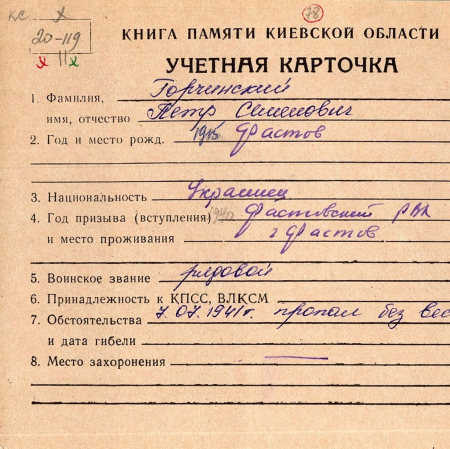 КС Х
78
20-119
х 11 х
КНИГА ПАМЯТИ КИЕВСКОЙ ОБЛАСТИ
УЧЕТНАЯ КАРТОЧКА
1. Фамилия, Горчинский
имя, отчество Петр Семенович
2. Год и место рожд. 1915 Фастов
3. Национальность Украинец
4. Год призыва (вступления) 1940 Фастовский РВК
и место проживания г Фастов
5. Воинское звание рядовой
6. Принадлежность к КПСС, ВЛКСМ
7. Обстоятельства 7.07.1941г. пропал без вес
и дата гибели
8. Место захоронения —